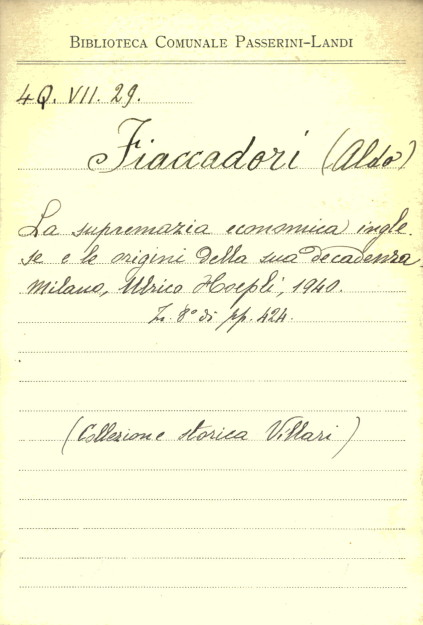 BIBLIOTECA COMUNALE PASSERINI-LANDI
4Q. VII. 29.
Fiaccadori (Aldo)
La supremazia economica ingle-
se e le origini della sua decadenza.
Milano, Ulrico Hoepli, 1940.
In 8° di pp. 424.
(Collezione storica Villari)